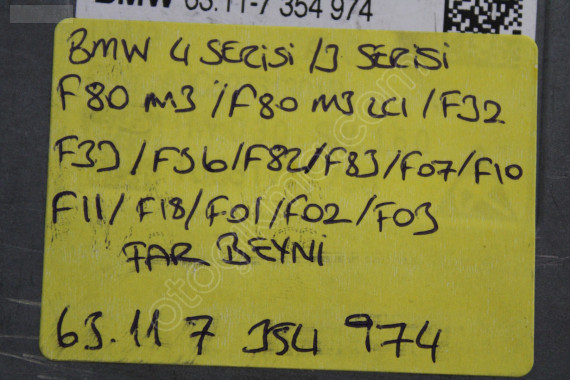 BMW 63.11-7 354 974
BMW 4 SERİSİ / 3 SERİSİ
F80 M3 / F80 M3 LCI / F32
F33 / F36 / F82 / F83 / F07 / F10
F11 / F18 / F01 / F02 / F03
FAR BEYNİ
63.11 7 354 974